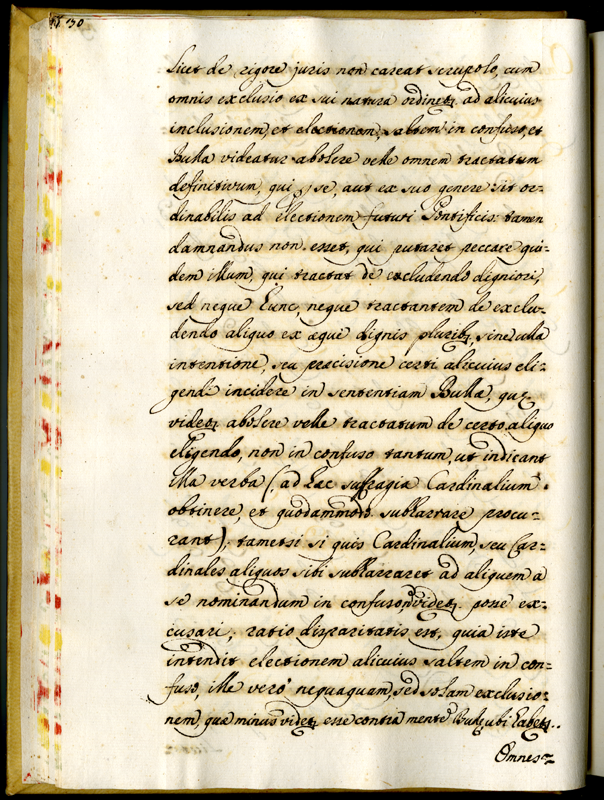 130
licet de rigore juris non careat scrupolo, cum
omnis exclusio ex sui natura ordinetꝫ ad alicuius
inclusionem, et electionem, saltem in confuso, et
Bulla videatur abolere velle omnem tractatum
definitivum, qui se, aut ex suo genere sit or-
dinabilis ad electionem futuri Pontificis: tamen
damnandus non esset, qui putaret peccare qui-
dem illum, qui tractat de excludendo digniori,
sed neque hunc, neque tractantem de exclu-
dendo aliquo ex æque dignis pluribꝫ, sine ulla
intentione, seu præcisione certi alicuius eli-
gendi incidere in sententiam Bullæ, quæ
videtꝫ abolere velle tractatum de certo aliquo
eligendo, non in confuso tantum, ut indicant
illa verba (ad hæc suffragia Cardinalium
obtinere, et quodammodo subharrare procu-
rant); tametsi si quis Cardinalium, seu Car-
dinales aliquos sibi subharraret ad aliquem a
se nominandum in confuso videtꝫ posse ex-
cusari; ratio disparitatis est, quia iste
intendit electionem alicuius saltem in con-
fuso, ille vero nequaquam, sed solam exclusio-
nem, quæ minus videtꝫ esse contra mentē Bullæ ubi habetꝫ..
Omnes